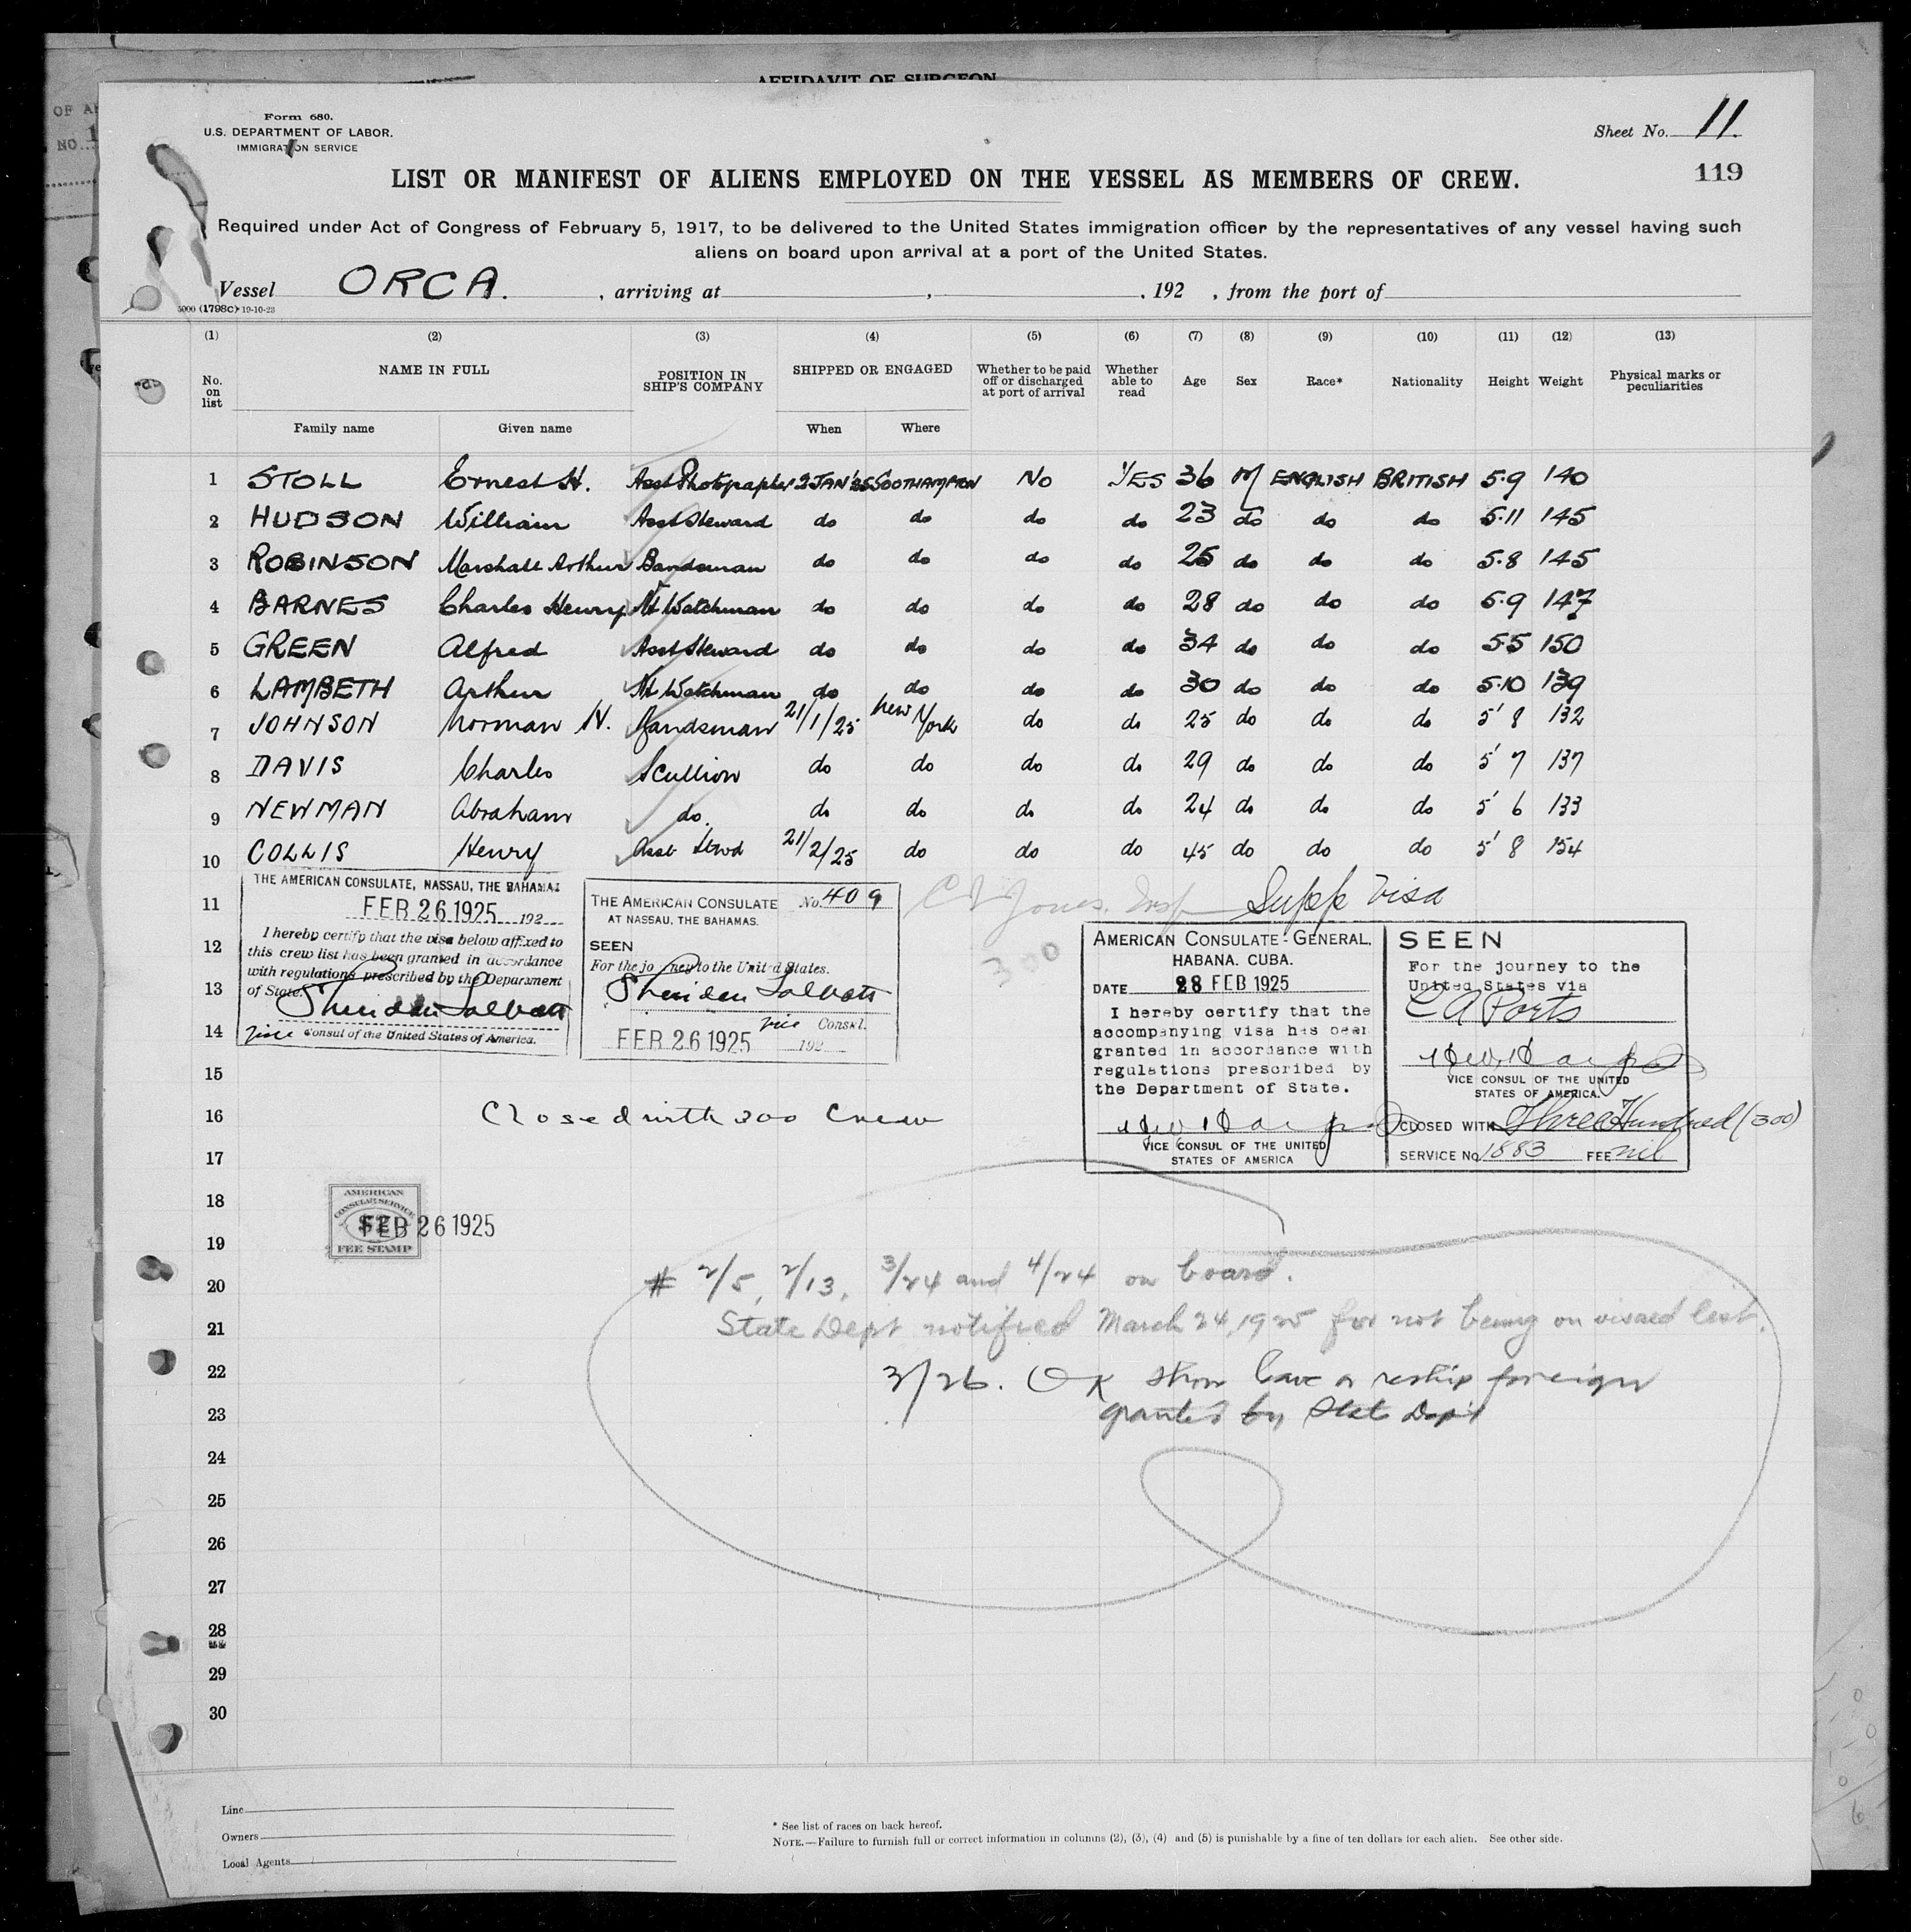 AFFIDAVIT OF SURGEON
Form 680.
U.S. DEPARTMENT OF LABOR.
IMMIGRATION SERVICE
Sheet No. 11.
119
LIST OR MANIFEST OF ALIENS EMPLOYED ON THE VESSEL AS MEMBERS OF CREW.
Required under Act of Congress of February 5, 1917, to be delivered to the United States immigration officer by the representatives of any vessel having such
aliens on board upon arrival at a port of the United States.
Vessel ORCA. , arriving at , , 192 , from the port of
5000 (1798C) 19-10-23
(1) (2) (3) (4) (5) (6) (7) (8) (9) (10) (11) (12) (13)
No. on list NAME IN FULL POSITION IN SHIP'S COMPANY SHIPPED OR ENGAGED Whether to be paid off or discharged at port of arrival Whether able to read Age Sex Race* Nationality Height Weight Physical marks or peculiarities
Family name Given name When Where
1 STOLL Ernest H. Asst Photographer 2 JAN '25 SOUTHAMPTON No YES 36 M ENGLISH BRITISH 5.9 140
2 HUDSON William Asst Steward do do do do 23 do do do 5.11 145
3 ROBINSON Marshall Arthur Bandsman do do do do 25 do do do 5.8 145
4 BARNES Charles Henry Nt Watchman do do do do 28 do do do 5.9 147
5 GREEN Alfred Asst Steward do do do do 34 do do do 5.5 150
6 LAMBETH Arthur Nt Watchman do do do do 30 do do do 5.10 139
7 JOHNSON Norman H. Bandsman 21/1/25 New York do do 25 do do do 5' 8 132
8 DAVIS Charles Scullion do do do do 29 do do do 5' 7 137
9 NEWMAN Abraham do. do do do do 24 do do do 5' 6 133
10 COLLIS Henry Asst Stwd 21/2/25 do do do 45 do do do 5' 8 154
11
12
13
14
15
16
17
18
19
20
21
22
23
24
25
26
27
28
29
30
THE AMERICAN CONSULATE, NASSAU, THE BAHAMAS
FEB 26 1925 192
I hereby certify that the visa below affixed to
this crew list has been granted in accordance
with regulations prescribed by the Department
of State.
Sheridan Talbott
Vice Consul of the United States of America.
THE AMERICAN CONSULATE No. 409
AT NASSAU, THE BAHAMAS.
SEEN
For the journey to the United States.
Sheridan Talbott
Vice Consul.
FEB 26 1925 192
Jones. Insp
300
Supp Visa
AMERICAN CONSULATE-GENERAL,
HABANA. CUBA.
DATE 28 FEB 1925
I hereby certify that the
accompanying visa has been
granted in accordance with
regulations prescribed by
the Department of State.
VICE CONSUL OF THE UNITED
STATES OF AMERICA
SEEN
For the journey to the
United States via
C A Ports
VICE CONSUL OF THE UNITED
STATES OF AMERICA.
CLOSED WITH Three Hundred (300)
SERVICE No 1883 FEE nil
Closed with 300 Crew
AMERICAN
CONSULAR SERVICE
$2
FEE STAMP
FEB 26 1925
# 2/5, 2/13, 3/24 and 4/24 on board.
State Dept notified March 24, 1925 for not being on visaed list.
3/26. OK leave reship foreign
granted by State Dept
Line
Owners
Local Agents
* See list of races on back hereof.
NOTE.—Failure to furnish full or correct information in columns (2), (3), (4) and (5) is punishable by a fine of ten dollars for each alien. See other side.